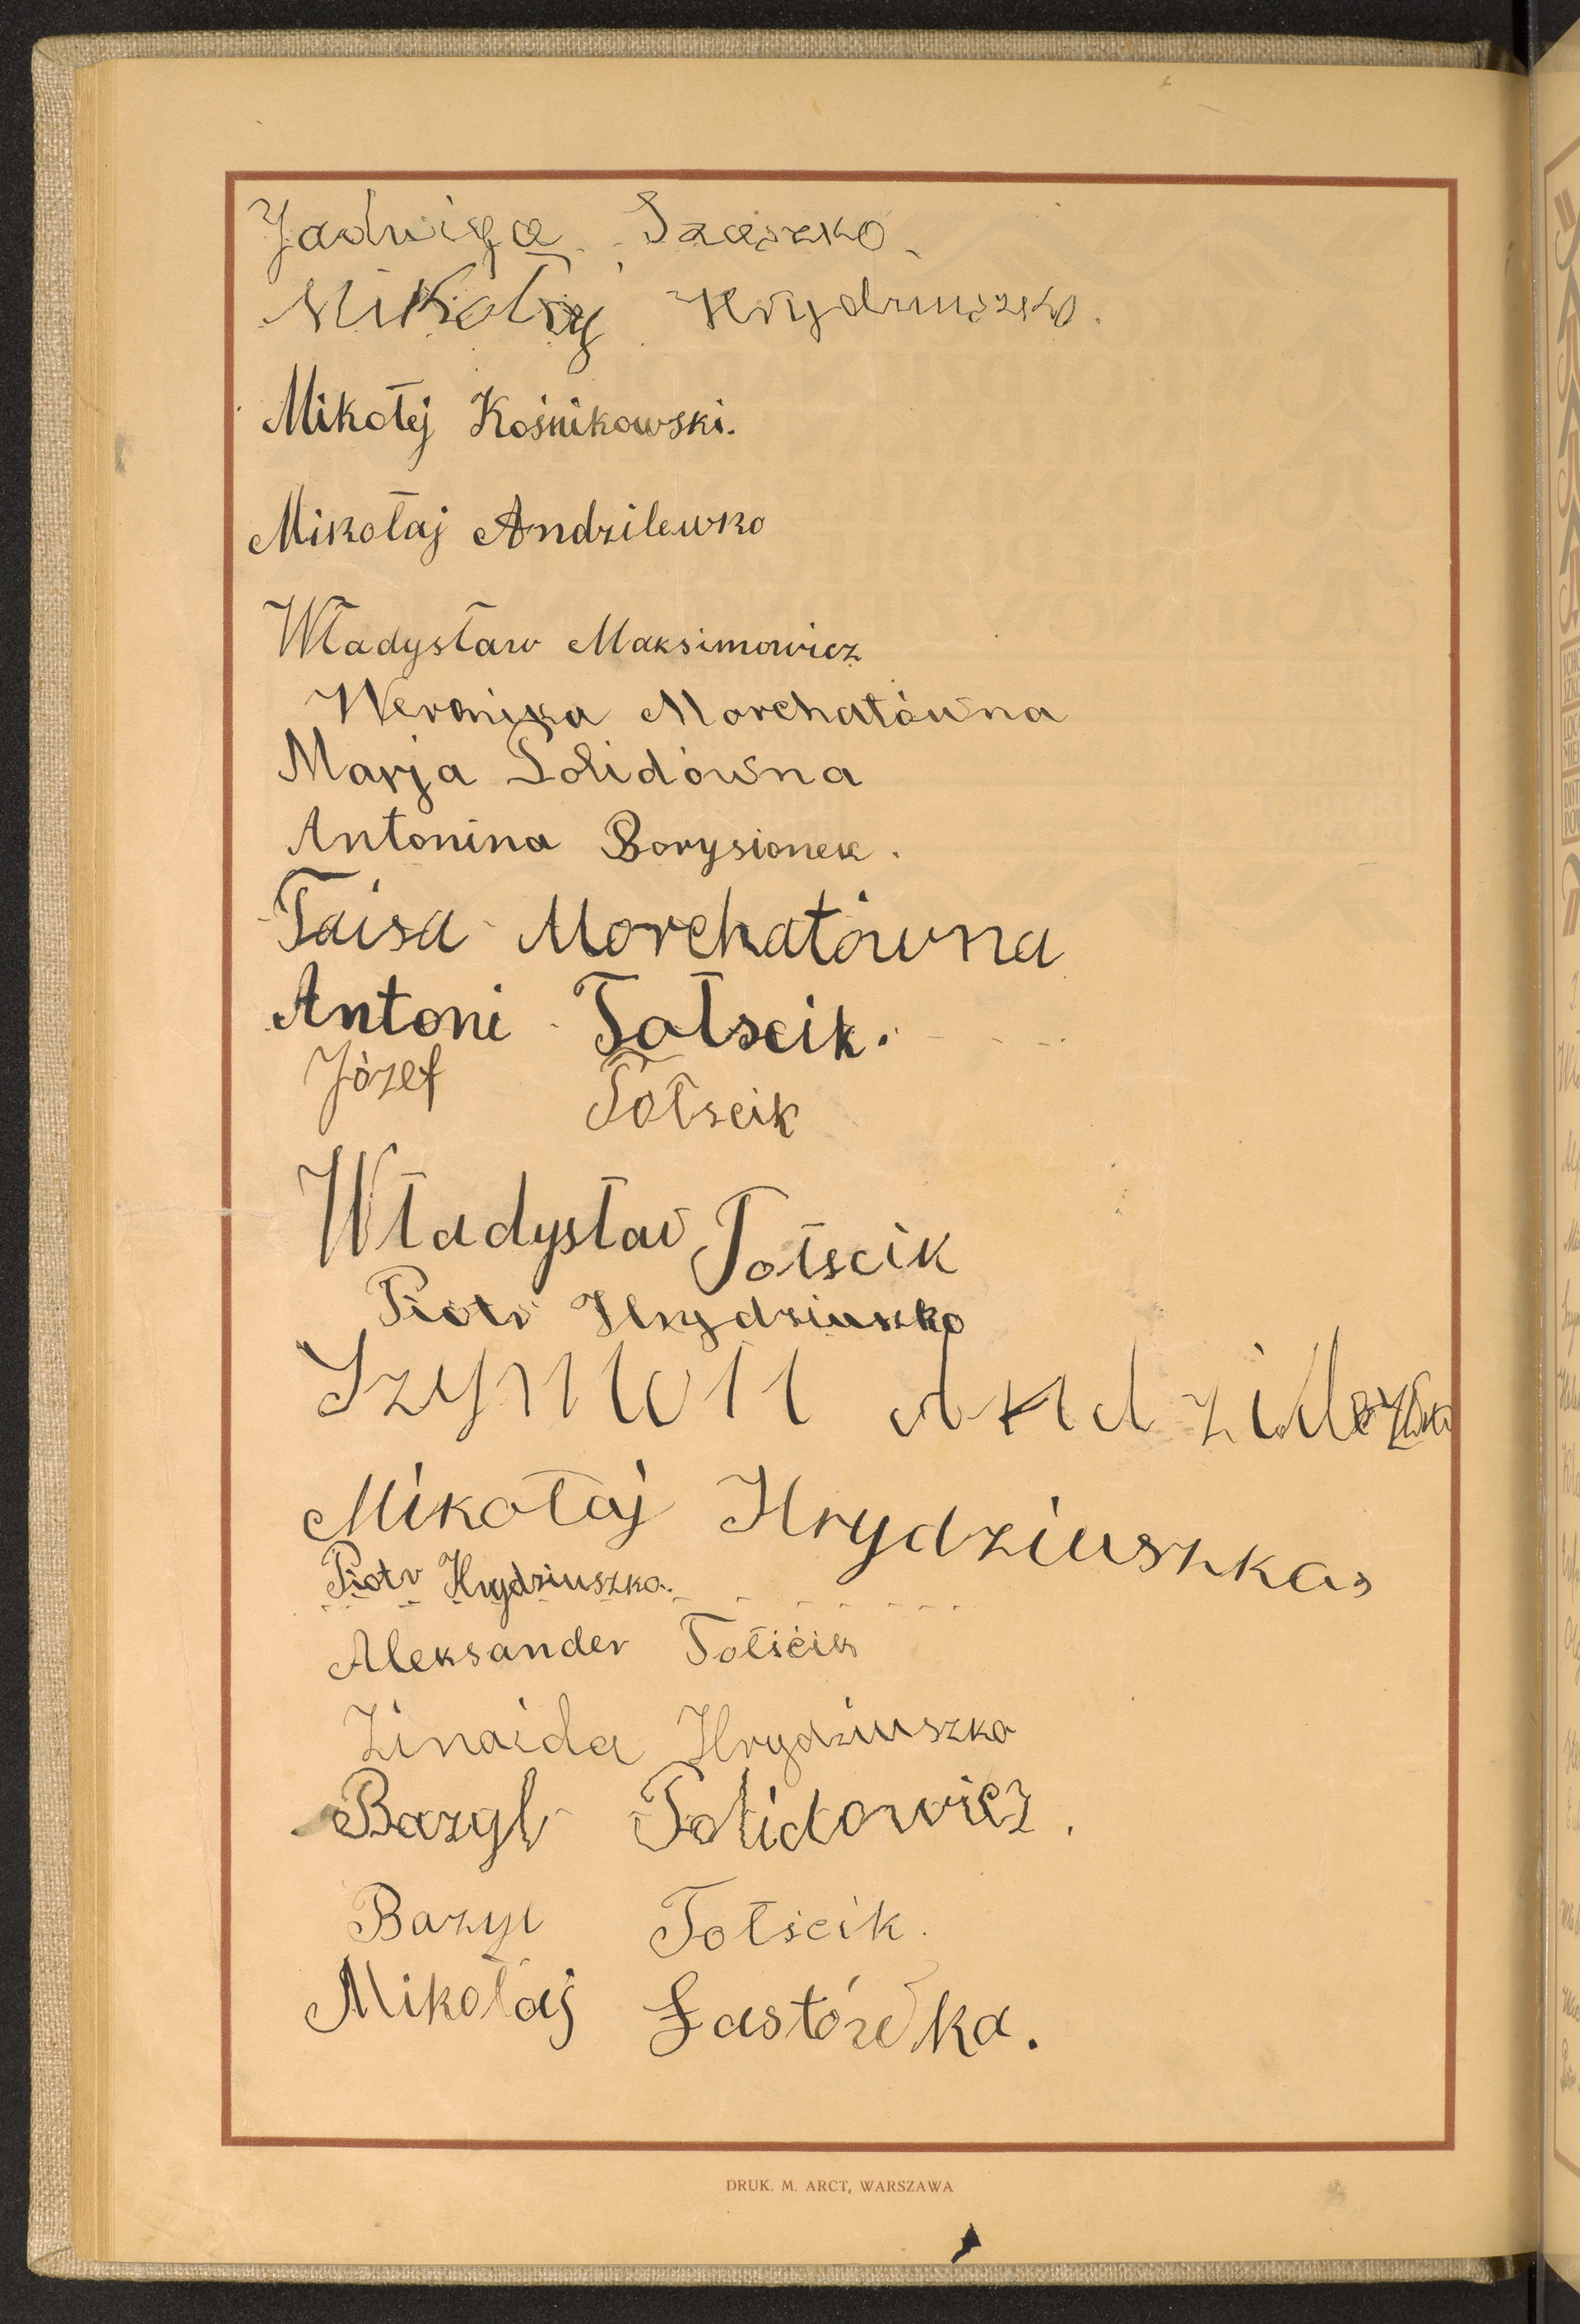 Jadwiga Szaszko.
Mikołaj Hrydziuszko.
Mikołej Kośnikowski.
Mikołaj Andzilewko
Władysław Maksimowicz
Weronika Morchatówna
Marja Solidówna
Antonina Borysionek.
Taisa Morchatówna
Antoni Tołscik.
Józef Tołscik
Władysław Tołscik
Piotr Hrydziuszko
Szymon
Mikołaj Hrydziuszka
Piotr Hrydziuszko.
Aleksander Tołścik
Zinaida Hrydziuszko
Bazyl Solidowicz.
Bazyl Tołścik.
Mikołaj Łastówka.
DRUK. M. ARCT, WARSZAWA